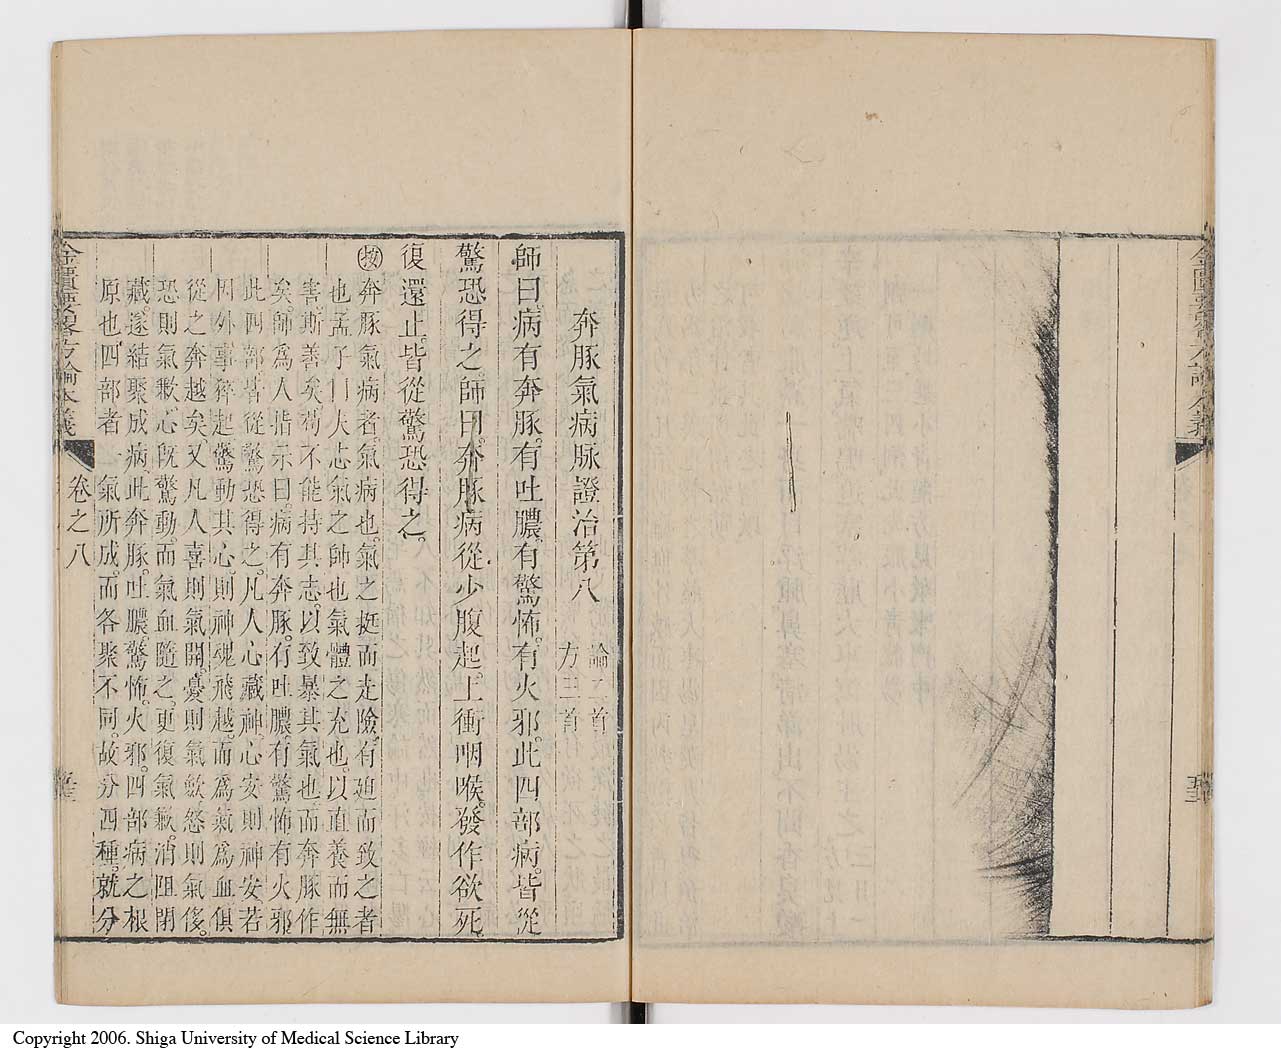 金匱要畧方論本義
五十二
奔豚氣病脉證治第八
論二首
方三首
師曰。病有奔豚。有吐膿。有驚怖。有火邪。此四部病。皆從
驚恐得之。師曰。奔豚病從少腹起。上衝咽喉。發作欲死。
復還止。皆從驚恐得之。
按奔豚氣病者。氣病也。氣之挺而走險。有迫而致之者
也。孟子曰。夫志氣之師也。氣體之充也。以直養而無
害。斯善矣。苟不能持其志。以致暴其氣也。而奔豚作
矣。師爲人指示曰。病有奔豚。有吐膿。有驚怖。有火邪
此四部皆從驚恐得之。凡人心藏神。心安則神安。若
因外事猝起。驚動其心。則神魂飛越。而爲氣爲血俱
從之奔越矣。又凡人喜則氣開。憂則氣歛。怒則氣侈。
恐則氣歉。心既驚動。而氣血隨之。更復氣歉。消阻閉
藏。遂結聚成病。此奔豚。吐膿。驚怖。火邪。四部病之根
原也。四部者一氣所成。而各聚不同。故分四種。就分
金匱要畧方論本義
卷之八